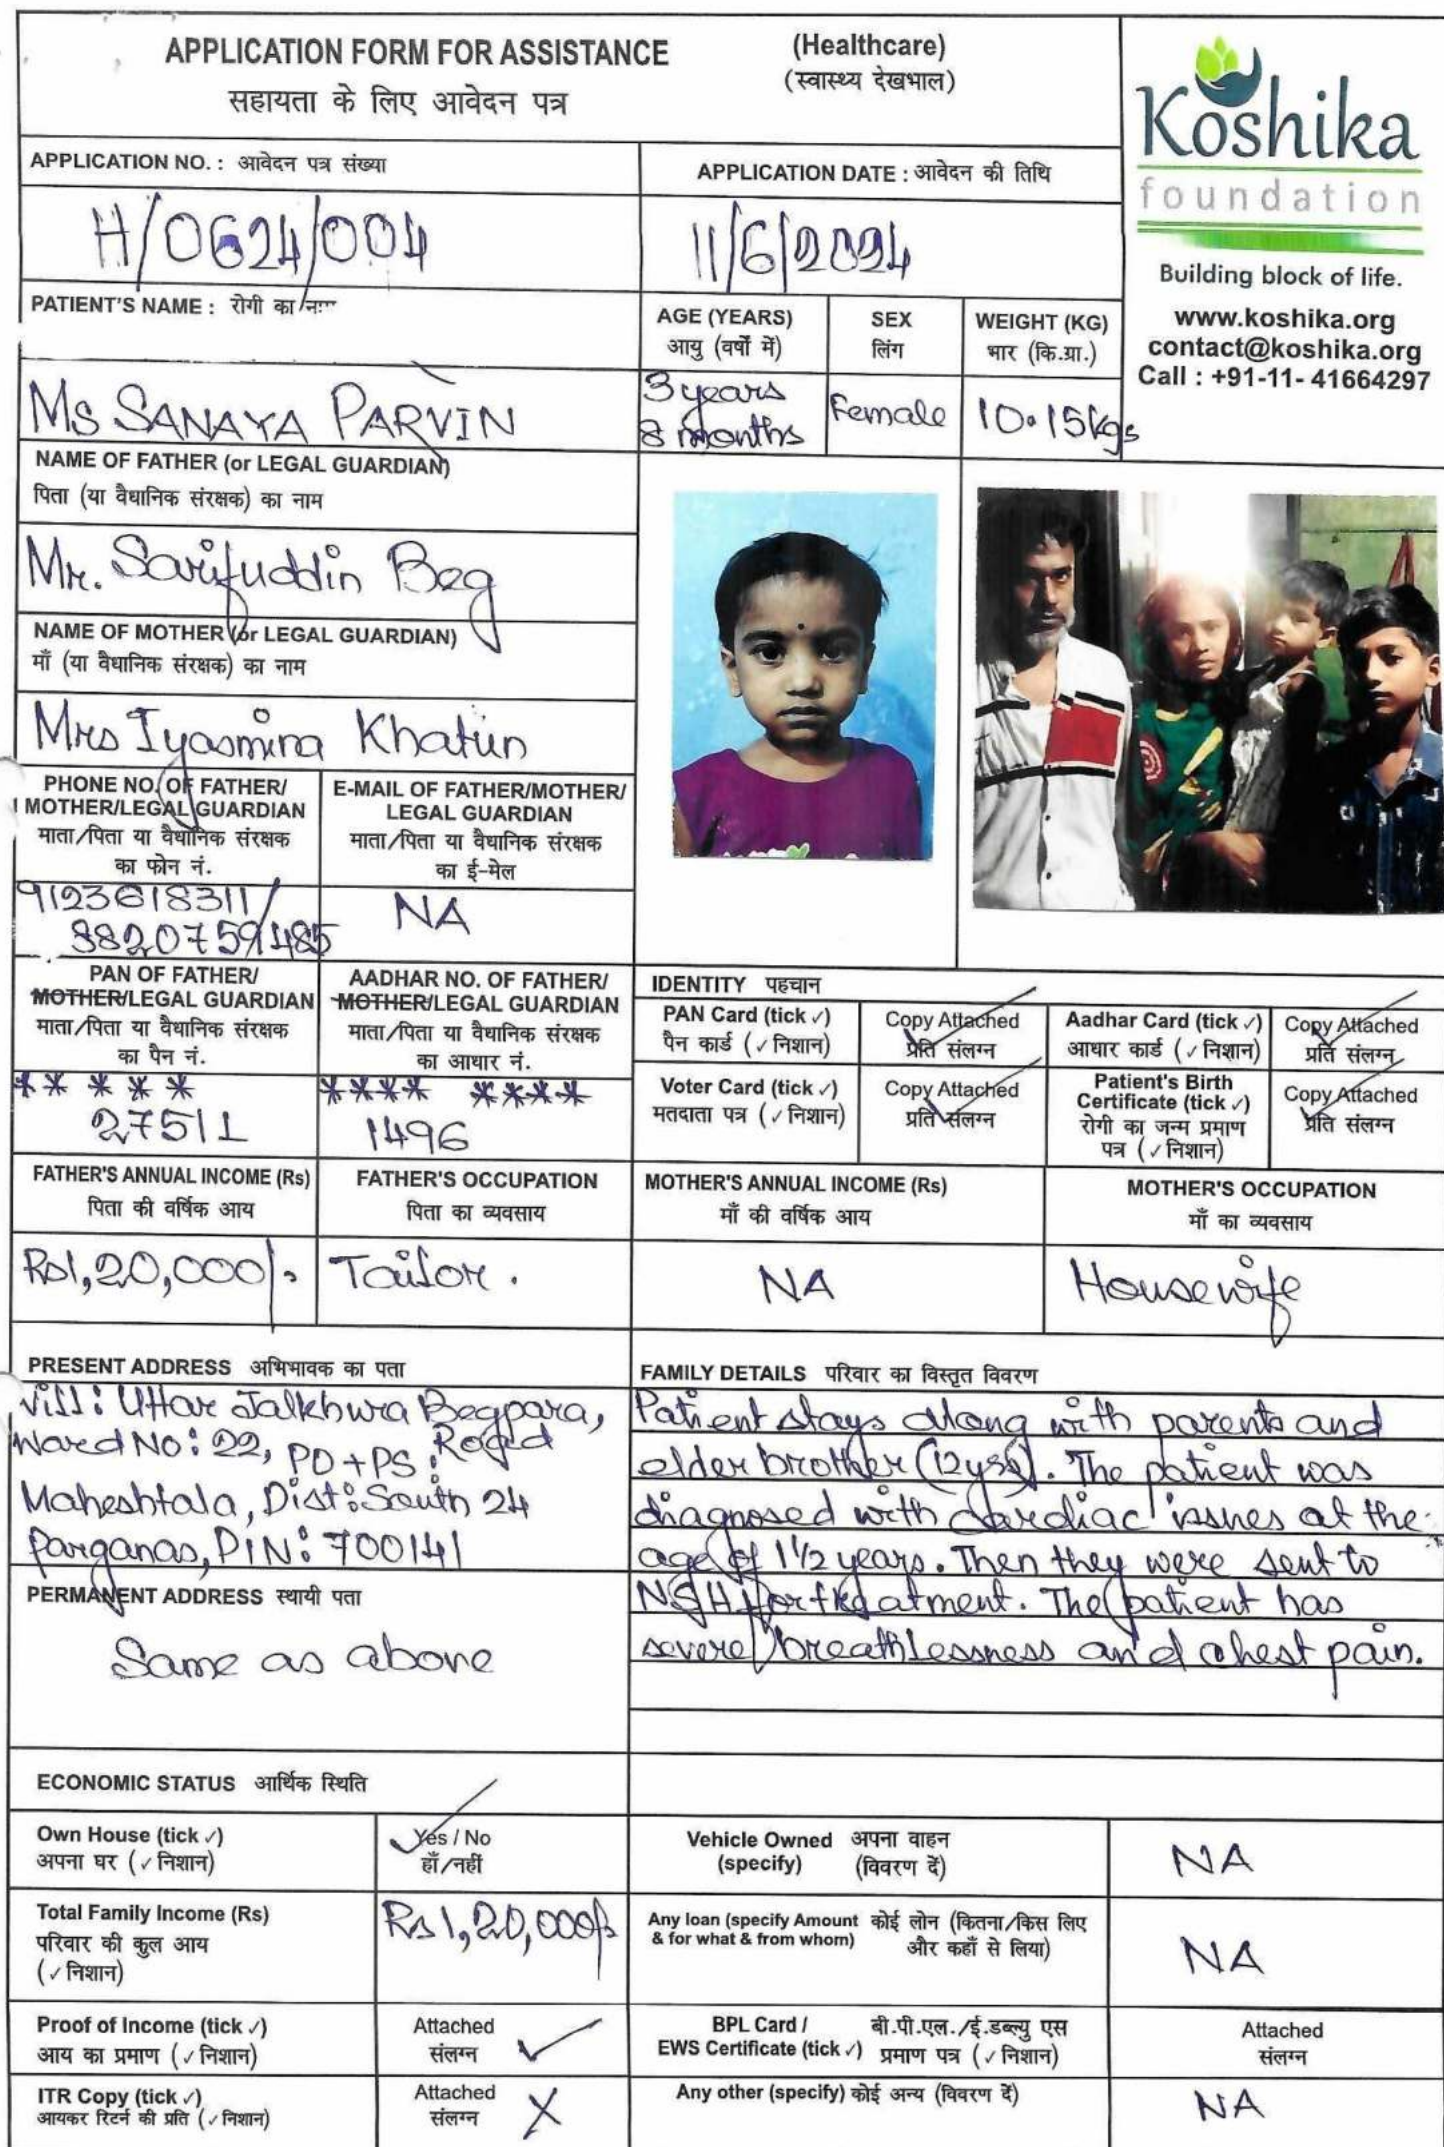 APPLICATION FORM FOR ASSISTANCE
(Healthcare)
सहायता के लिए आवेदन पत्र
(स्वास्थ्य देखभाल)
Koshika
foundation
Building block of life.
www.koshika.org
contact@koshika.org
Call : +91-11- 41664297
APPLICATION NO. : आवेदन पत्र संख्या
APPLICATION DATE : आवेदन की तिथि
H/0624/004
11/6/2024
PATIENT'S NAME : रोगी का
AGE (YEARS)
आयु (वर्षों में)
SEX
लिंग
WEIGHT (KG)
भार (कि.ग्रा.)
Ms SANAYA PARVIN
3 years
8 months
Female
10.15kgs
NAME OF FATHER (or LEGAL GUARDIAN)
पिता (या वैधानिक संरक्षक) का नाम
Mr. Sarifuddin Beg
NAME OF MOTHER (or LEGAL GUARDIAN)
माँ (या वैधानिक संरक्षक) का नाम
Mrs Iyasmina Khatun
PHONE NO. OF FATHER/
MOTHER/LEGAL GUARDIAN
माता/पिता या वैधानिक संरक्षक
का फोन नं.
E-MAIL OF FATHER/MOTHER/
LEGAL GUARDIAN
माता/पिता या वैधानिक संरक्षक
का ई-मेल
9123618311/
NA
PAN OF FATHER/
MOTHER/LEGAL GUARDIAN
माता/पिता या वैधानिक संरक्षक
का पैन नं.
AADHAR NO. OF FATHER/
MOTHER/LEGAL GUARDIAN
माता/पिता या वैधानिक संरक्षक
का आधार नं.
IDENTITY पहचान
PAN Card (tick ✓)
पैन कार्ड (✓ निशान)
Copy Attached
प्रति संलग्न
Aadhar Card (tick ✓)
आधार कार्ड (✓ निशान)
Copy Attached
प्रति संलग्न
Voter Card (tick ✓)
मतदाता पत्र (✓ निशान)
Copy Attached
प्रति संलग्न
Patient's Birth
Certificate (tick ✓)
रोगी का जन्म प्रमाण
पत्र (✓ निशान)
Copy Attached
प्रति संलग्न
** ***
**** ****
1496
FATHER'S ANNUAL INCOME (Rs)
पिता की वर्षिक आय
FATHER'S OCCUPATION
पिता का व्यवसाय
MOTHER'S ANNUAL INCOME (Rs)
माँ की वर्षिक आय
MOTHER'S OCCUPATION
माँ का व्यवसाय
Rs1,20,000/-
Tailor.
NA
Housewife
PRESENT ADDRESS अभिभावक का पता
Vill: Uttar Jalkhura Begpara,
Ward No: 22, PO+PS:
Maheshtala, Dist: South 24
Parganas, PIN: 700141
PERMANENT ADDRESS स्थायी पता
Same as above
FAMILY DETAILS परिवार का विस्तृत विवरण
Patient stays along with parents and
elder brother (12yrs). The patient was
diagnosed with cardiac issues at the
age of 1½ years. Then they were sent to
NSH for treatment. The patient has
severe breathlessness and chest pain.
ECONOMIC STATUS आर्थिक स्थिति
Own House (tick ✓)
अपना घर (✓ निशान)
Yes / No
हाँ/नहीं
Vehicle Owned अपना वाहन
(specify) (विवरण दें)
NA
Total Family Income (Rs)
परिवार की कुल आय
(✓ निशान)
Rs 1,20,000/-
Any loan (specify Amount कोई लोन (कितना/किस लिए
& for what & from whom) और कहाँ से लिया)
NA
Proof of Income (tick ✓)
आय का प्रमाण (✓ निशान)
Attached
संलग्न ✓
BPL Card / बी.पी.एल./ई.डब्ल्यु एस
EWS Certificate (tick ✓) प्रमाण पत्र (✓ निशान)
Attached
संलग्न
ITR Copy (tick ✓)
आयकर रिटर्न की प्रति (✓ निशान)
Attached
संलग्न X
Any other (specify) कोई अन्य (विवरण दें)
NA